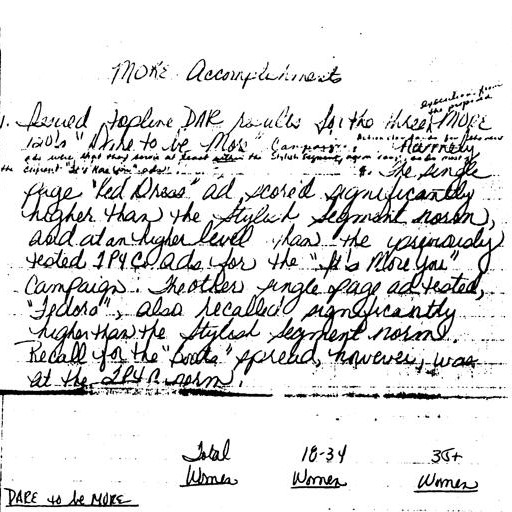 MORE Accomplishments
execution from
the proposed
1. Issued topline DAR results for the three MORE
120's "Dare to be More" Campaign. Namely
ads were that they score at least within the Stylish Segment norm
the current "It's More You" ads. The single
page "Red Dress" ad scored significantly
higher than the Stylish Segment norm,
and at an higher level than the previously
tested 1P4C ads for the "It's More You"
Campaign. The other single page ad tested,
"Fedora", also recalled significantly
higher than the Stylish Segment norm.
Recall for the "Boots" spread, however, was
at the 2P4C norm.
Total 18-34 35+
Women Women Women
DARE to be MORE